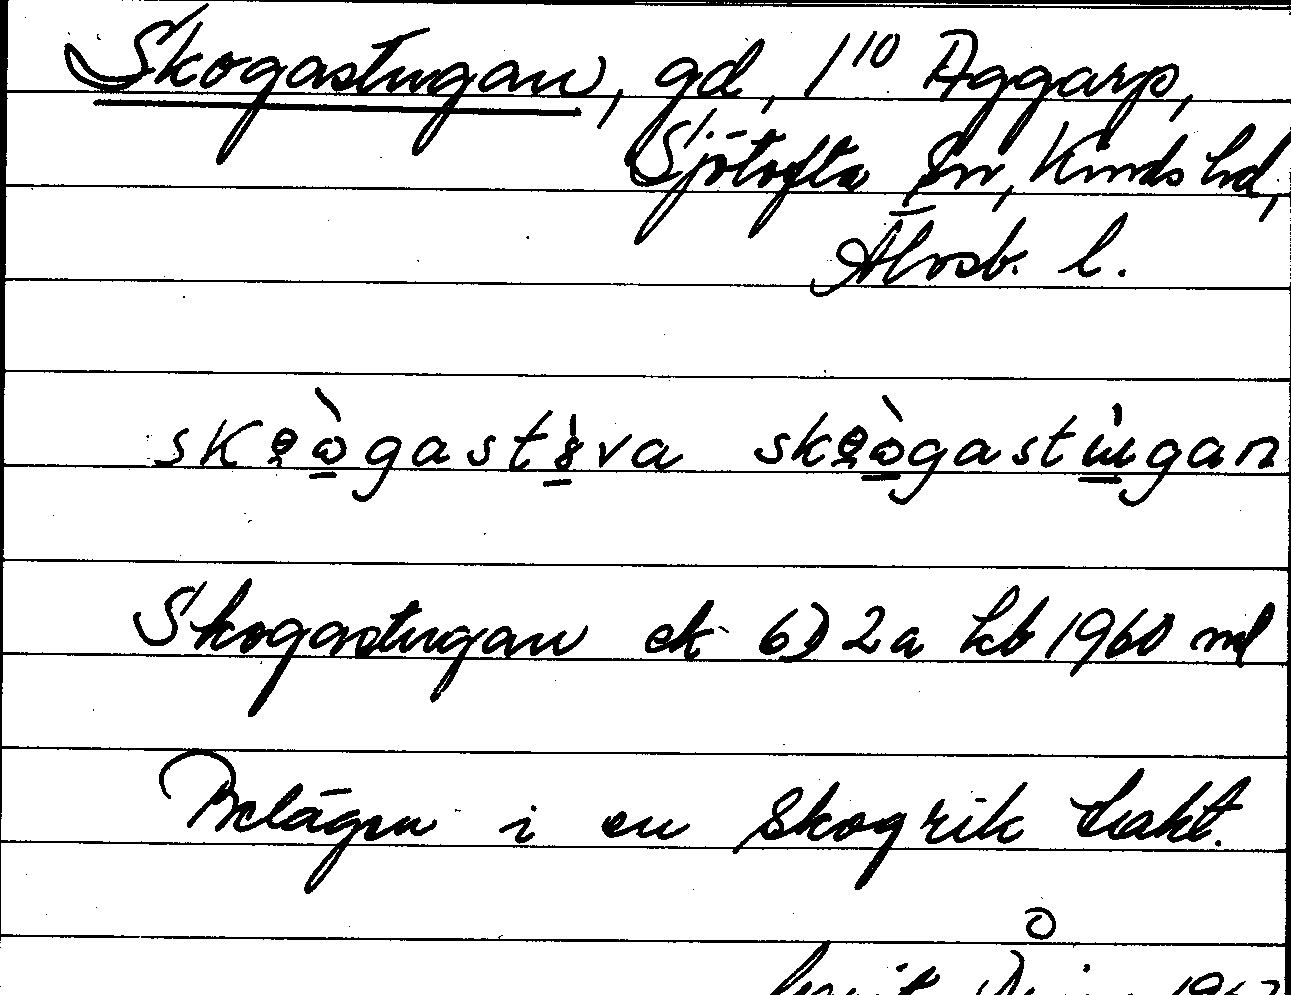 Skogastugan, gd, 1¹⁰ Aggarp,
Sjötofta sn, Kinds hd,
Älvsb. l.
skògastva skògastugan
Skogastugan ek 6) 2a kb 1960 ml
Belägen i en skogrik trakt.